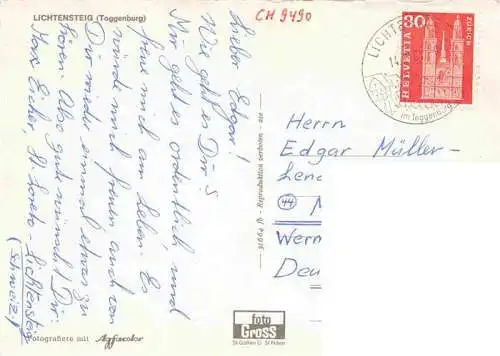 LICHTENSTEIG (Toggenburg)
CH 9490
Lieber Edgar!
Wie geht es Dir?
Mir geht es ordentlich, und
freue mich am Leben. Es
würde mich freuen auch von
Dir wieder einmal etwas zu
hören. Also gute mal! Dir.
Max Eicher, St. Loreto-Lichtensteig
(Schweiz)
Fotografiert mit Agfacolor
31664 fb - Reproduktion verboten - are
foto
Gross
St. Gallen St. Fiden
LICHTE
im Toggenburg
HELVETIA
30
ZÜRICH
Herrn
Edgar Müller-
Lene
(44) M
Wern
Deu